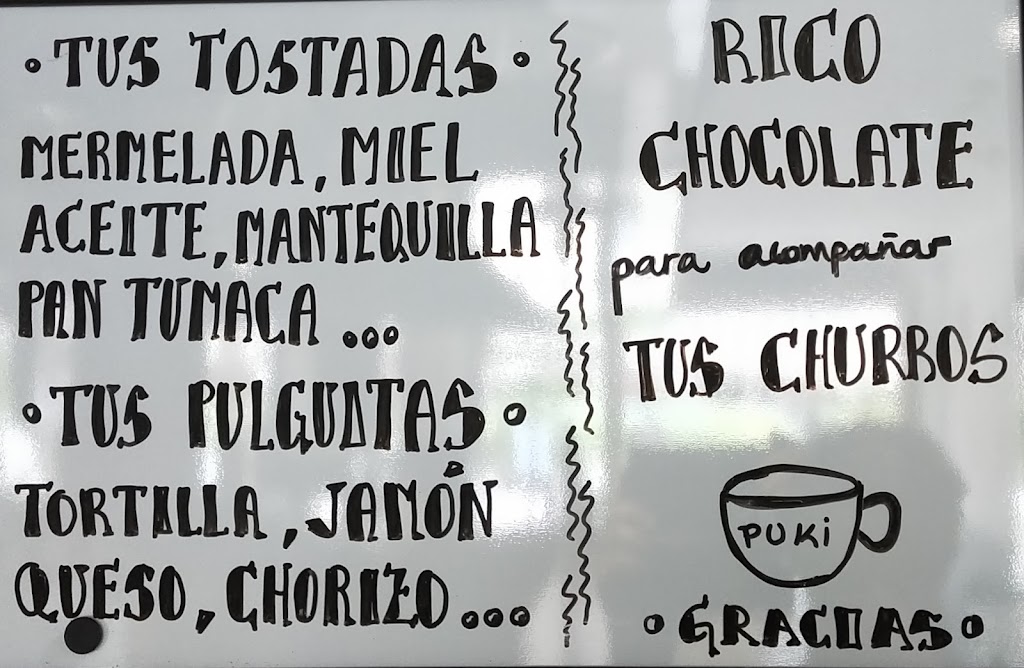 • TUS TOSTADAS •
MERMELADA, MIEL
ACEITE, MANTEQUILLA
PAN TUMACA ...
• TUS PULGUITAS •
TORTILLA, JAMÓN
QUESO, CHORIZO...
RICO
CHOCOLATE
para acompañar
TUS CHURROS
PUKi
• GRACIAS •